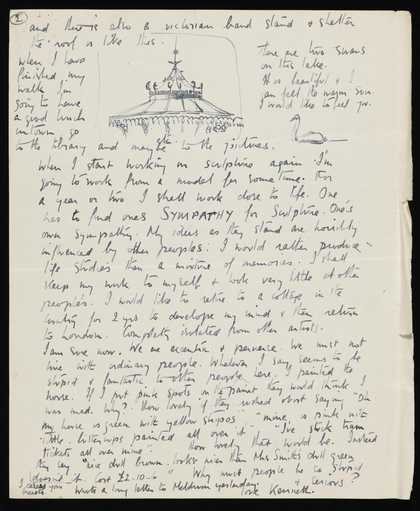 2
and there is also a victorian band stand & shelter
the roof is like this.
When I have
finished my
walk I'm
going to have
a good lunch
in town go
to the library and maybe to the pictures.
There are two swans
on this lake.
It is beautiful & I
can feel the warm sun
I would like to feel you.
When I start working on sculpture again I'm
going to work from a model for some time. For
a year or two I shall work close to life. One
has to find ones SYMPATHY for Sculpture. One's
own sympathy. My ideas as they stand are horribly
influenced by other peoples. I would rather produce
life studies than a mixture of memories. I shall
keep my work to myself & look very little at other
peoples. I would like to retire to a cottage in the
country for 2 yrs to develope my mind & then return
to London. Completely isolated from other artists.
I am sure now. We are eccentric & perverse. We must not
live with ordinary people. Whatever I say seems to be
stupid & fantastic to other people here. I painted the
house. If I put pink spots on the paint they would think I
was mad. Why? How lovely if they rushed about saying "Oh
my house is green with yellow stripes" "mine is pink with
little buttercups painted all over it" "I've stuck tram
tickets all over mine" How lovely that would be. Instead
they say "nice dull brown. looks nicer than Mrs Smiths dull green
Cost £2-10-6" Why must people be so stupid
& serious?
Wrote a long letter to Meldrum yesterday.
love Kenneth.